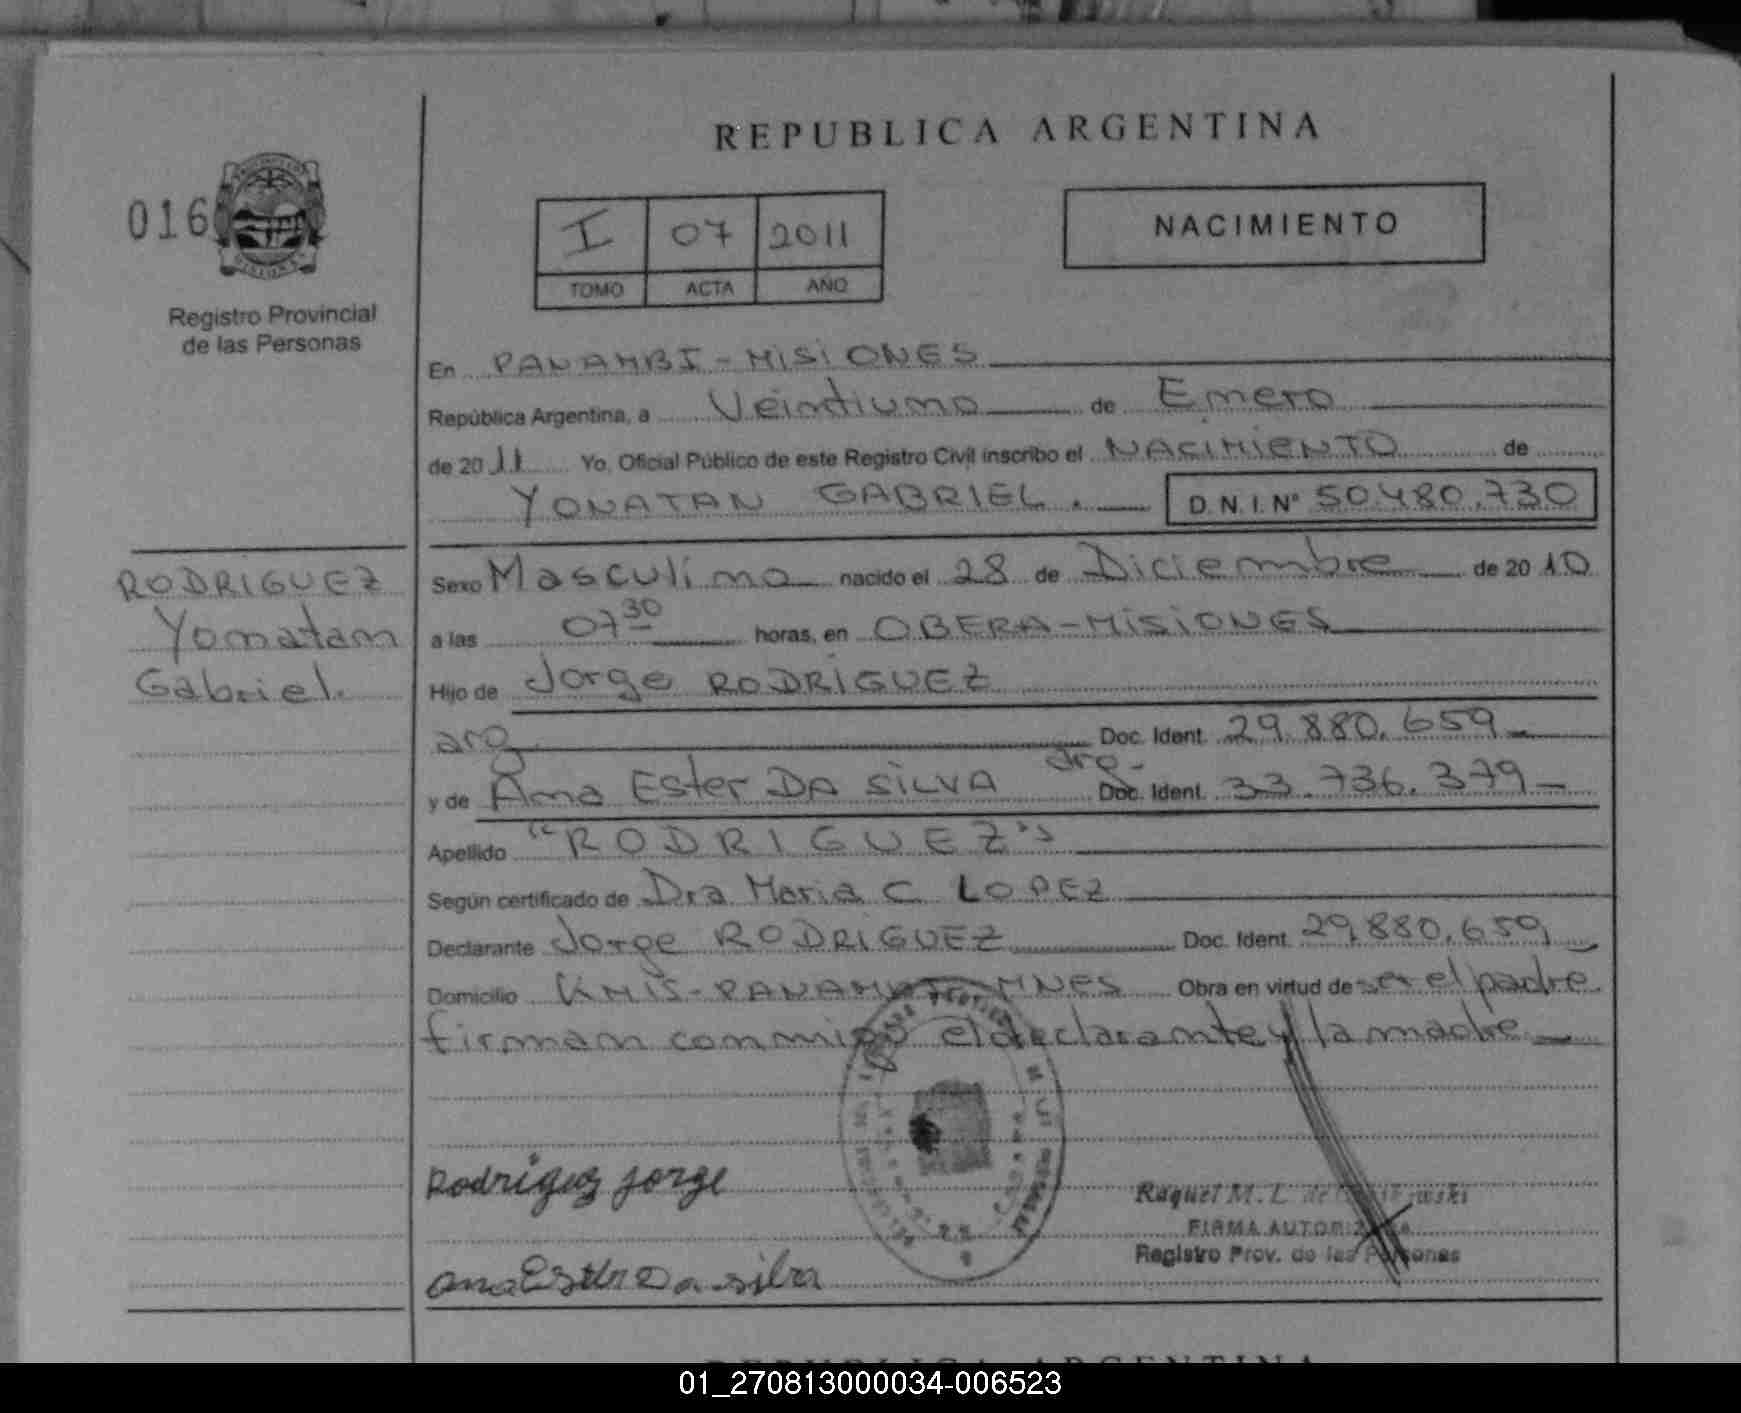 REPUBLICA ARGENTINA
016
NACIMIENTO
I 07 2011
TOMO ACTA AÑO
Registro Provincial
de las Personas
En PANAMBI - MISIONES
República Argentina, a Veintiuno de Enero
de 2011 Yo, Oficial Público de este Registro Civil inscribo el NACIMIENTO de
YONATAN GABRIEL. D.N.I. Nº 50.480.730
RODRIGUEZ
Yonatan
Gabriel.
Sexo Masculino nacido el 28 de Diciembre de 2010
a las 07 30 horas, en OBERA - MISIONES
Hijo de Jorge RODRIGUEZ
arg Doc. Ident. 29.880.659
y de Ana Ester DA SILVA arg. Doc. Ident. 33.736.379
Apellido "RODRIGUEZ"
Según certificado de Dra Maria C LOPEZ
Declarante Jorge RODRIGUEZ Doc. Ident. 29.880.659
Domicilio KM15 - PANAMBI MNES Obra en virtud de ser el padre
firman conmigo el declarante y la madre
Rodriguez Jorge
Raquel M. L. de
FIRMA AUTORIZADA
Registro Prov. de las Personas
ana Ester Da silva
REPUBLICA ARGENTINA
01_270813000034-006523